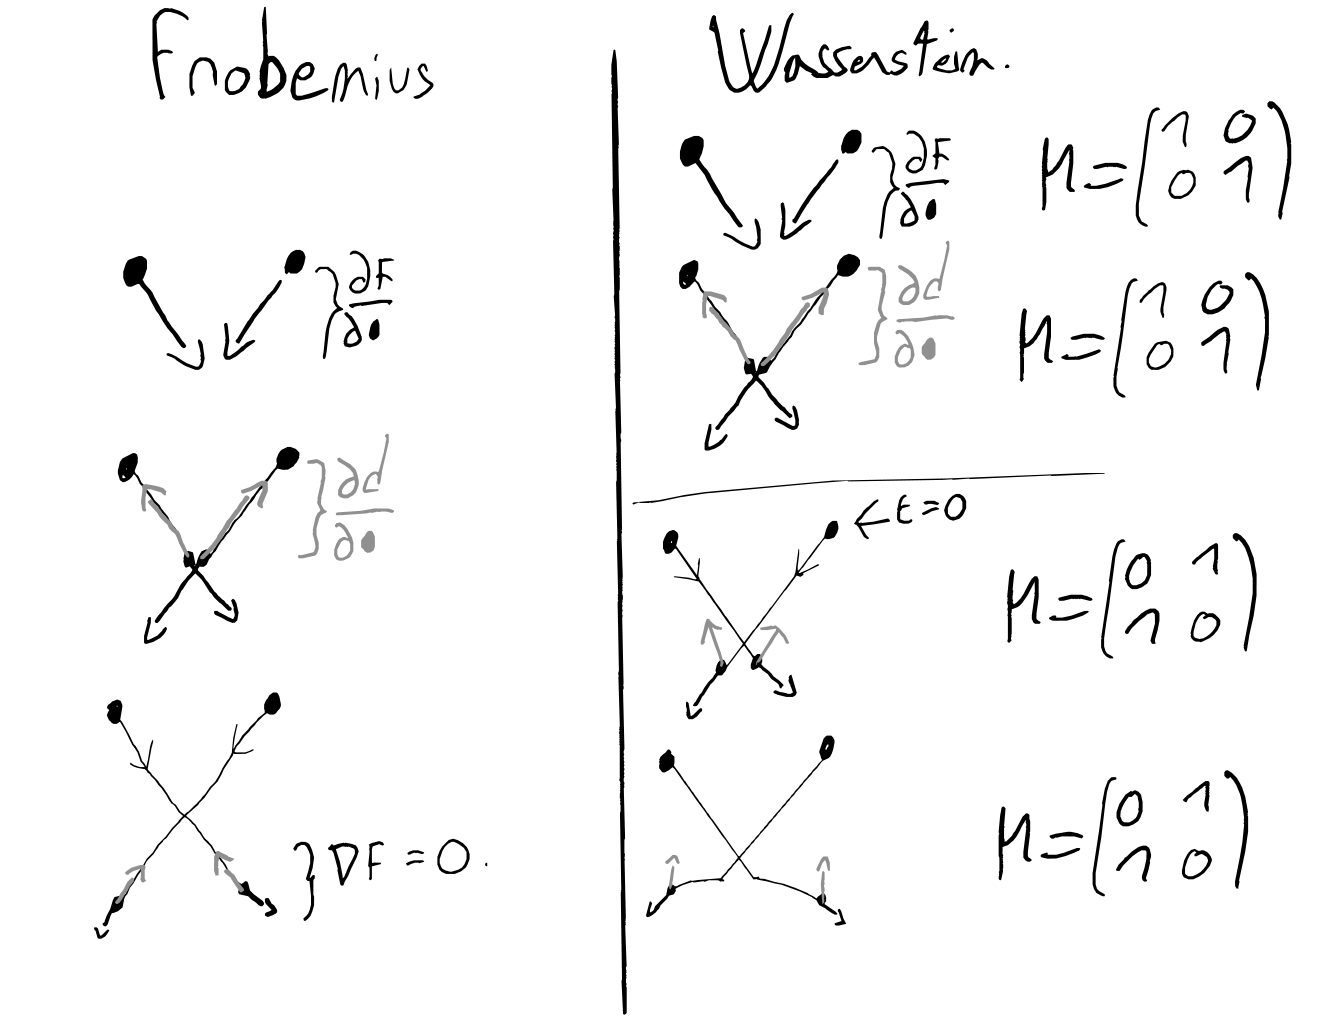 Frobenius
} ∂F/∂•
} ∂d/∂•
} ∇F = 0.
Wasserstein.
} ∂F/∂•
M = (1 0
0 1)
} ∂d/∂•
M = (1 0
0 1)
← t=0
M = (0 1
1 0)
M = (0 1
1 0)